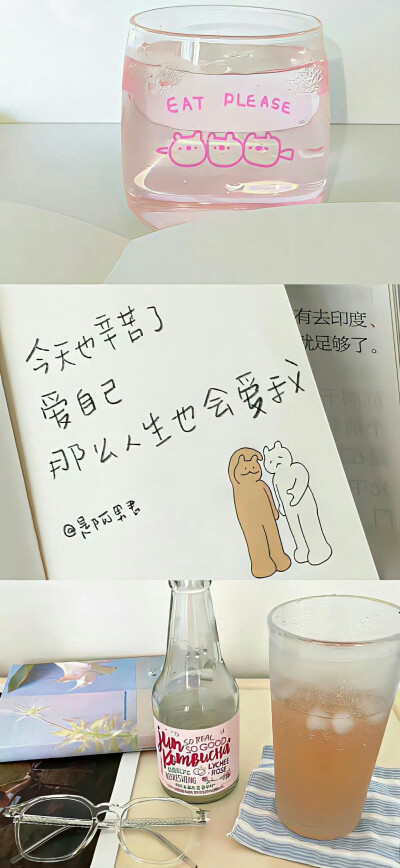 EAT PLEASE
今天也辛苦了
爱自己
那么人生也会爱我
@是阿男君
有去印度、
就足够了。
Jun
SO REAL
SO GOOD
Kombucha
LYCHEE
ROSE
REFRESHING